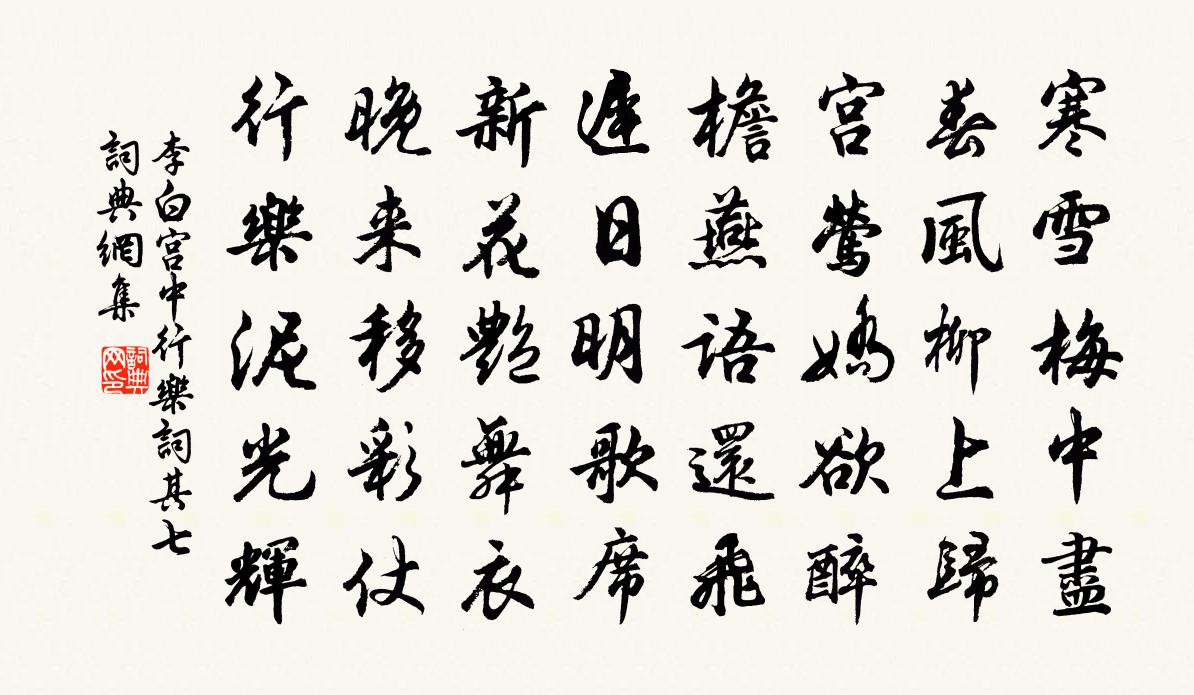 寒雪梅中盡
春風柳上歸
宮鶯嬌欲醉
檐燕語還飛
遲日明歌席
新花艷舞衣
晚来移彩仗
行樂泥光輝
李白宮中行樂詞其七
詞典網集
詞典网印